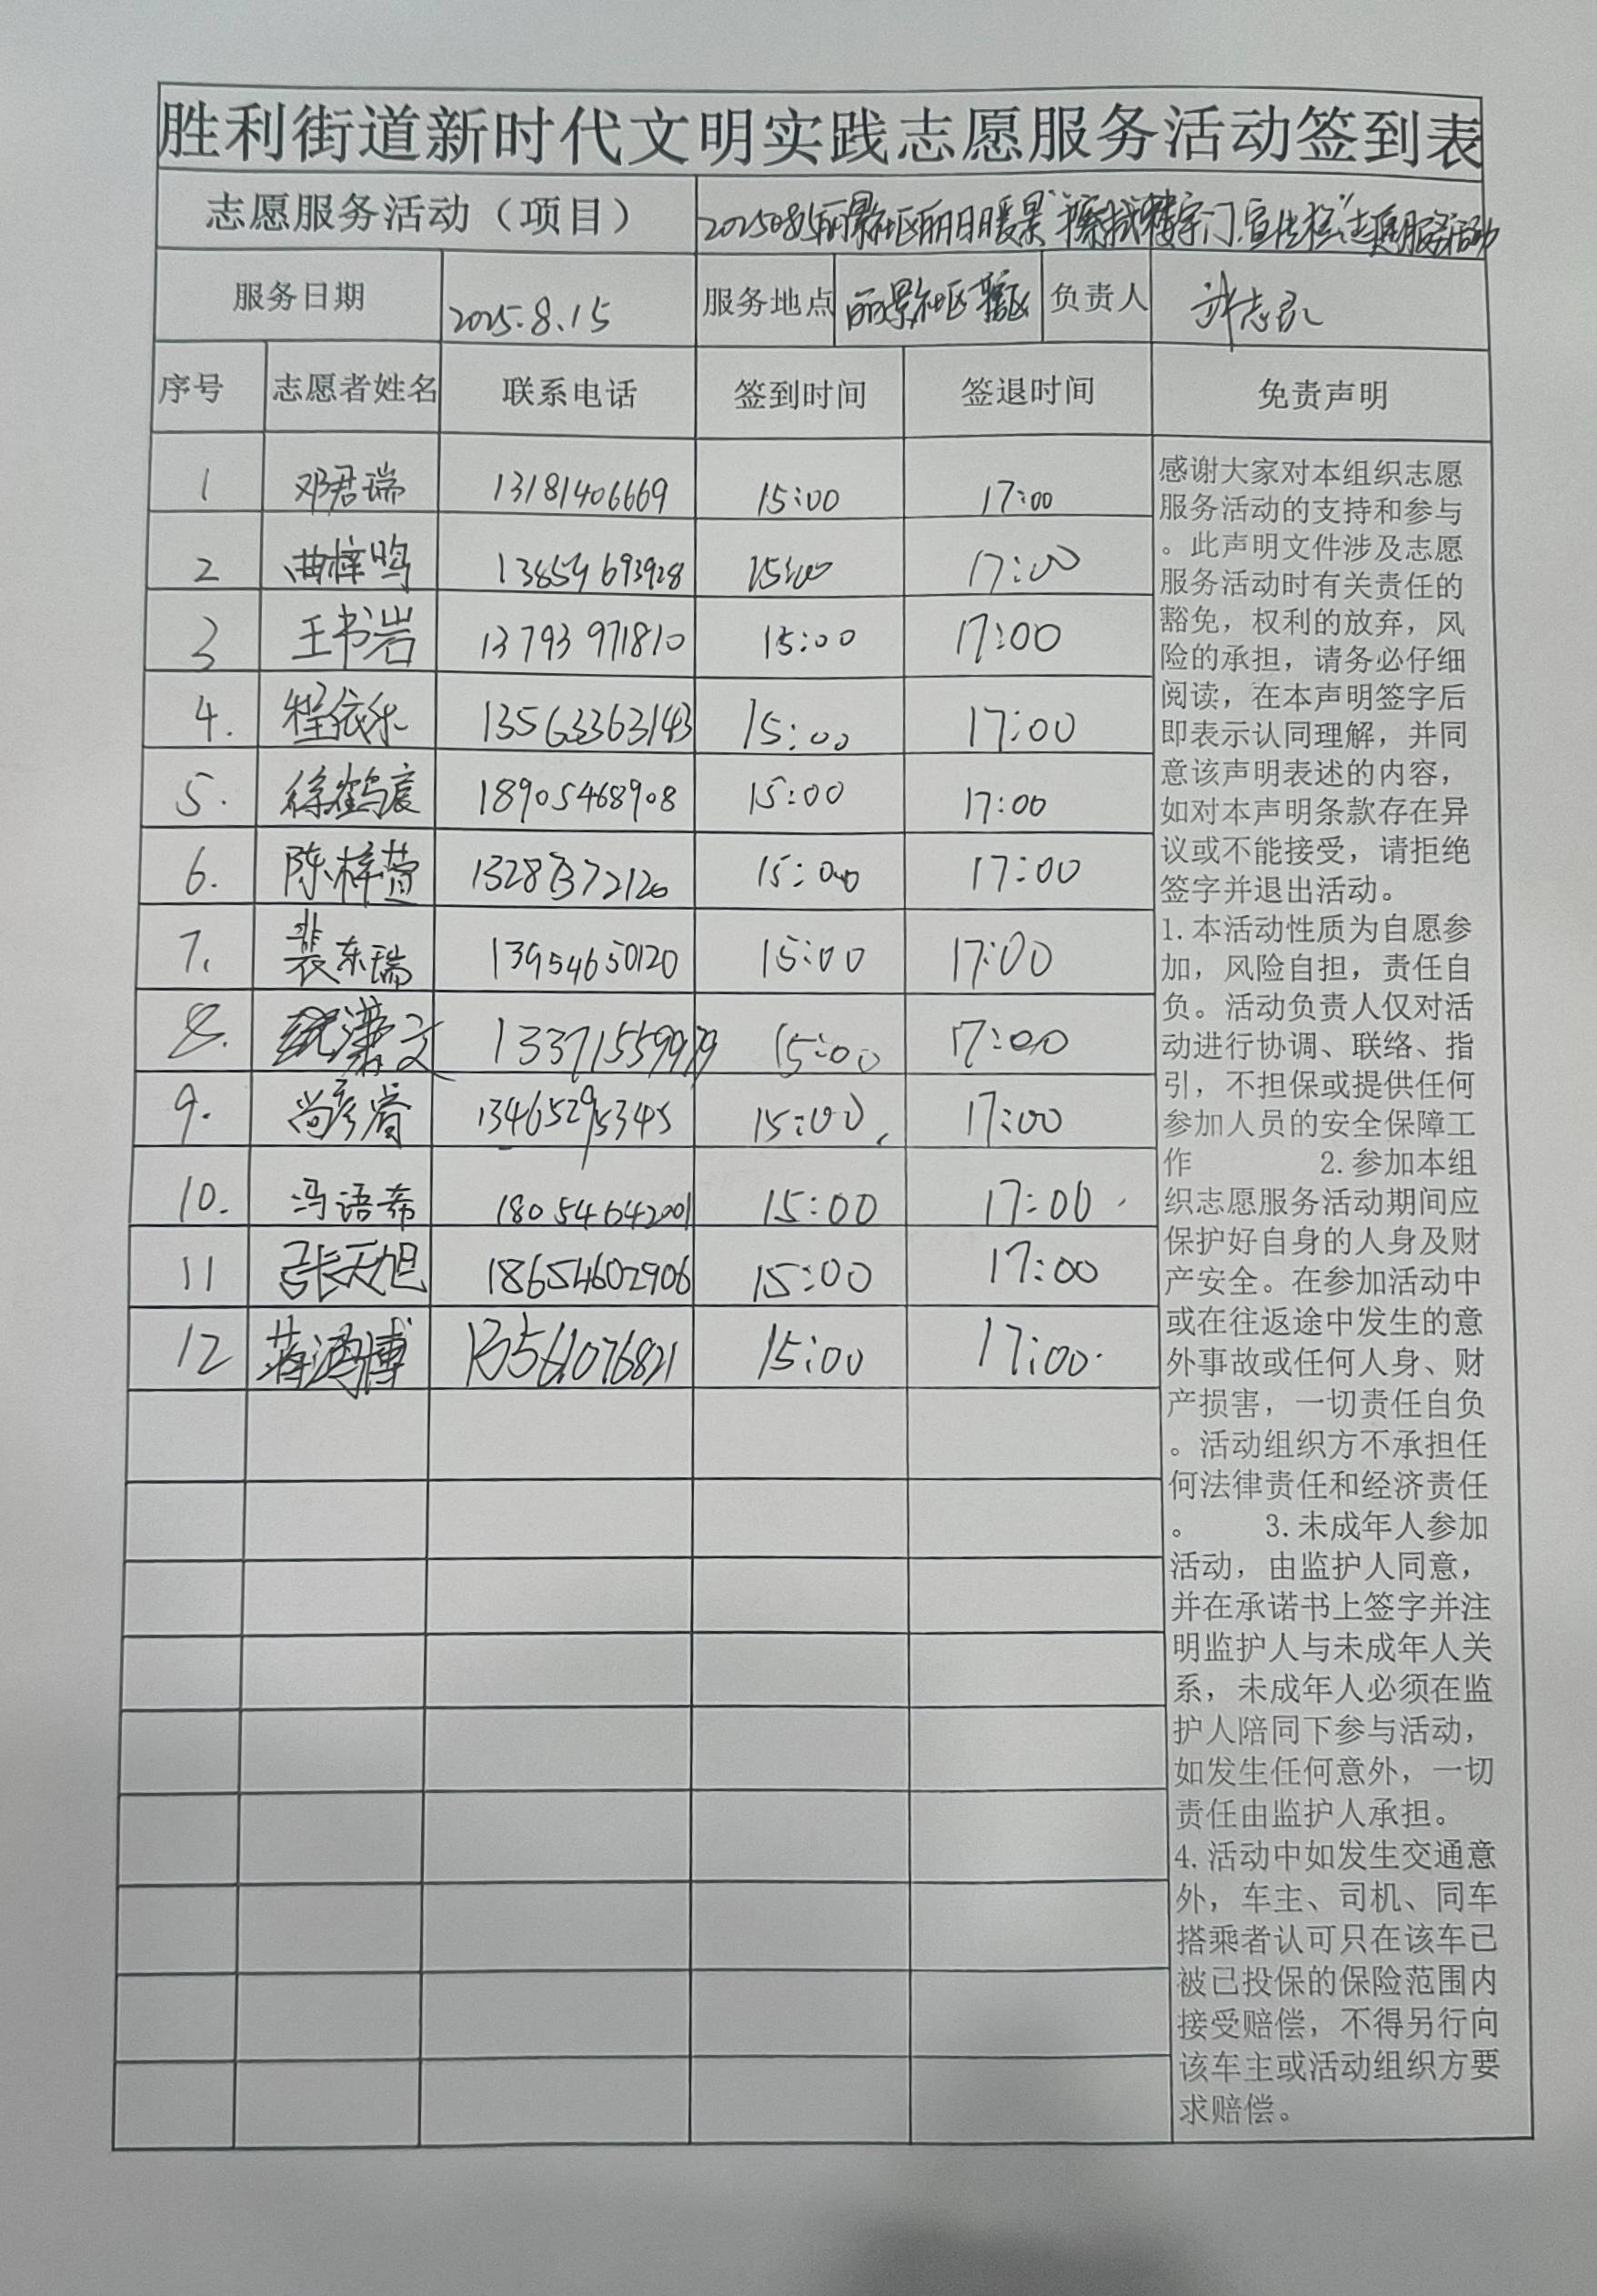 胜利街道新时代文明实践志愿服务活动签到表
志愿服务活动（项目） 20250815丽景社区丽日暖景“擦拭楼宇门、宣传栏”志愿服务活动
服务日期 2025.8.15 服务地点 丽景社区辖区 负责人
序号 志愿者姓名 联系电话 签到时间 签退时间 免责声明
1 邓君瑞 13181406669 15:00 17:00
2 曲梓鸣 13854693928 15:00 17:00
3 王书岩 13793971810 15:00 17:00
4. 程依乐 13563363143 15:00 17:00
5. 徐鹤宸 18905468908 15:00 17:00
6. 陈梓萱 15:00 17:00
7. 裴东瑞 13954650120 15:00 17:00
8. 15:00 17:00
9. 尚彦睿 13465295345 15:00 17:00
10. 冯语希 18054642001 15:00 17:00
11 张天旭 18654602906 15:00 17:00
12 蒋鸿博 15:00 17:00
感谢大家对本组织志愿
服务活动的支持和参与
。此声明文件涉及志愿
服务活动时有关责任的
豁免，权利的放弃，风
险的承担，请务必仔细
阅读，在本声明签字后
即表示认同理解，并同
意该声明表述的内容，
如对本声明条款存在异
议或不能接受，请拒绝
签字并退出活动。
1.本活动性质为自愿参
加，风险自担，责任自
负。活动负责人仅对活
动进行协调、联络、指
引，不担保或提供任何
参加人员的安全保障工
作 2.参加本组
织志愿服务活动期间应
保护好自身的人身及财
产安全。在参加活动中
或在往返途中发生的意
外事故或任何人身、财
产损害，一切责任自负
。活动组织方不承担任
何法律责任和经济责任
。 3.未成年人参加
活动，由监护人同意，
并在承诺书上签字并注
明监护人与未成年人关
系，未成年人必须在监
护人陪同下参与活动，
如发生任何意外，一切
责任由监护人承担。
4.活动中如发生交通意
外，车主、司机、同车
搭乘者认可只在该车已
被已投保的保险范围内
接受赔偿，不得另行向
该车主或活动组织方要
求赔偿。